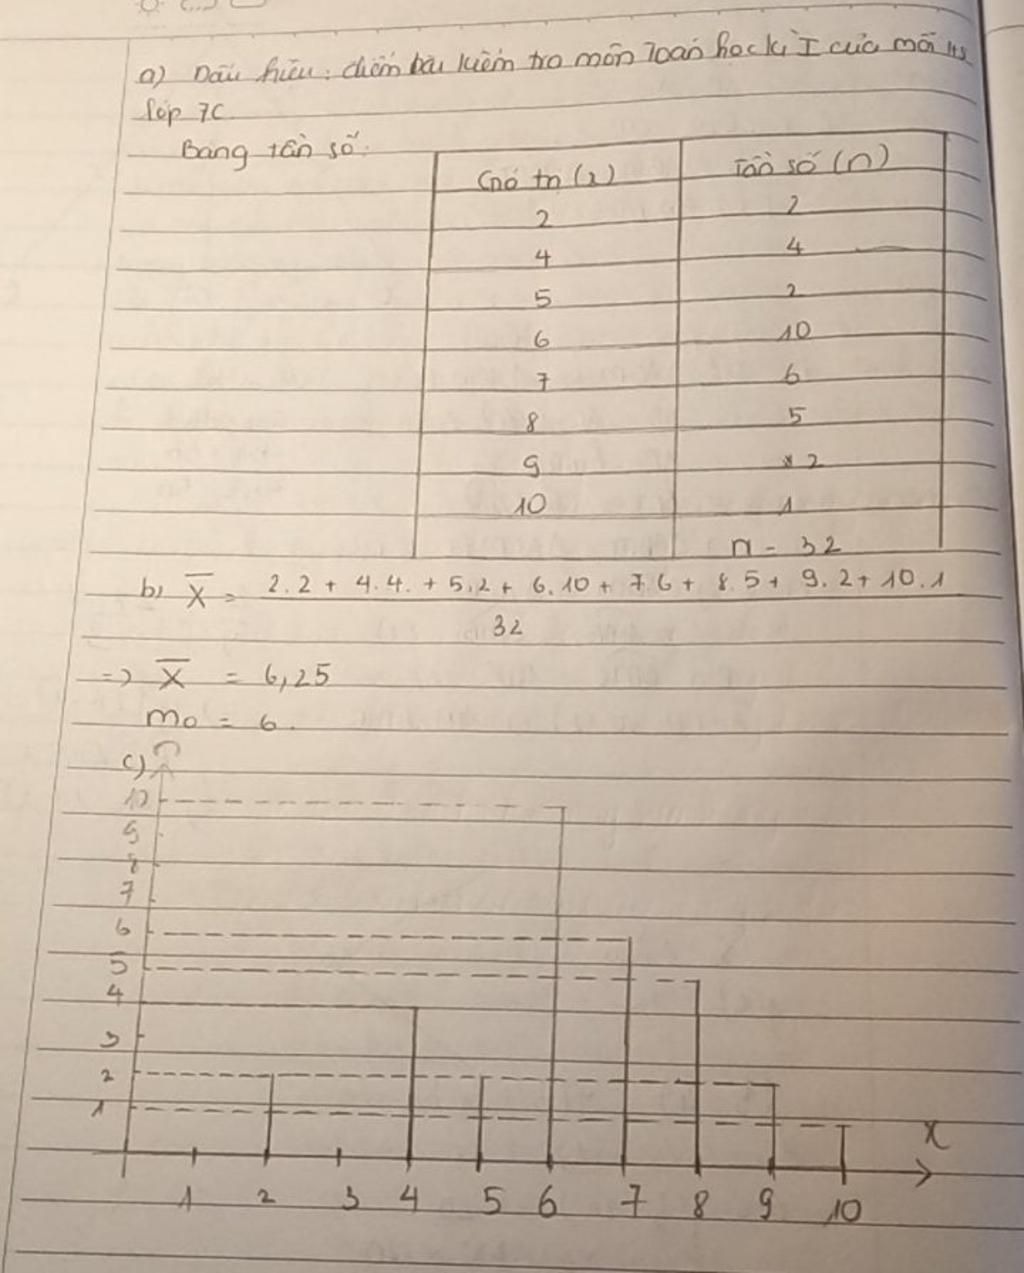 a) Dấu hiệu: điểm bài kiểm tra môn Toán học kì I của mỗi HS
lớp 7C.
Bảng tần số:
Giá trị (x) Tần số (n)
2 2
4 4
5 2
6 10
7 6
8 5
9 2
10 1
n = 32
b) X̄ = 2.2 + 4.4. + 5.2 + 6.10 + 7.6 + 8.5 + 9.2 + 10.1
32
=> X̄ = 6,25
mo = 6.
c) n
10
9
8
7
6
5
4
3
2
1
x
1 2 3 4 5 6 7 8 9 10